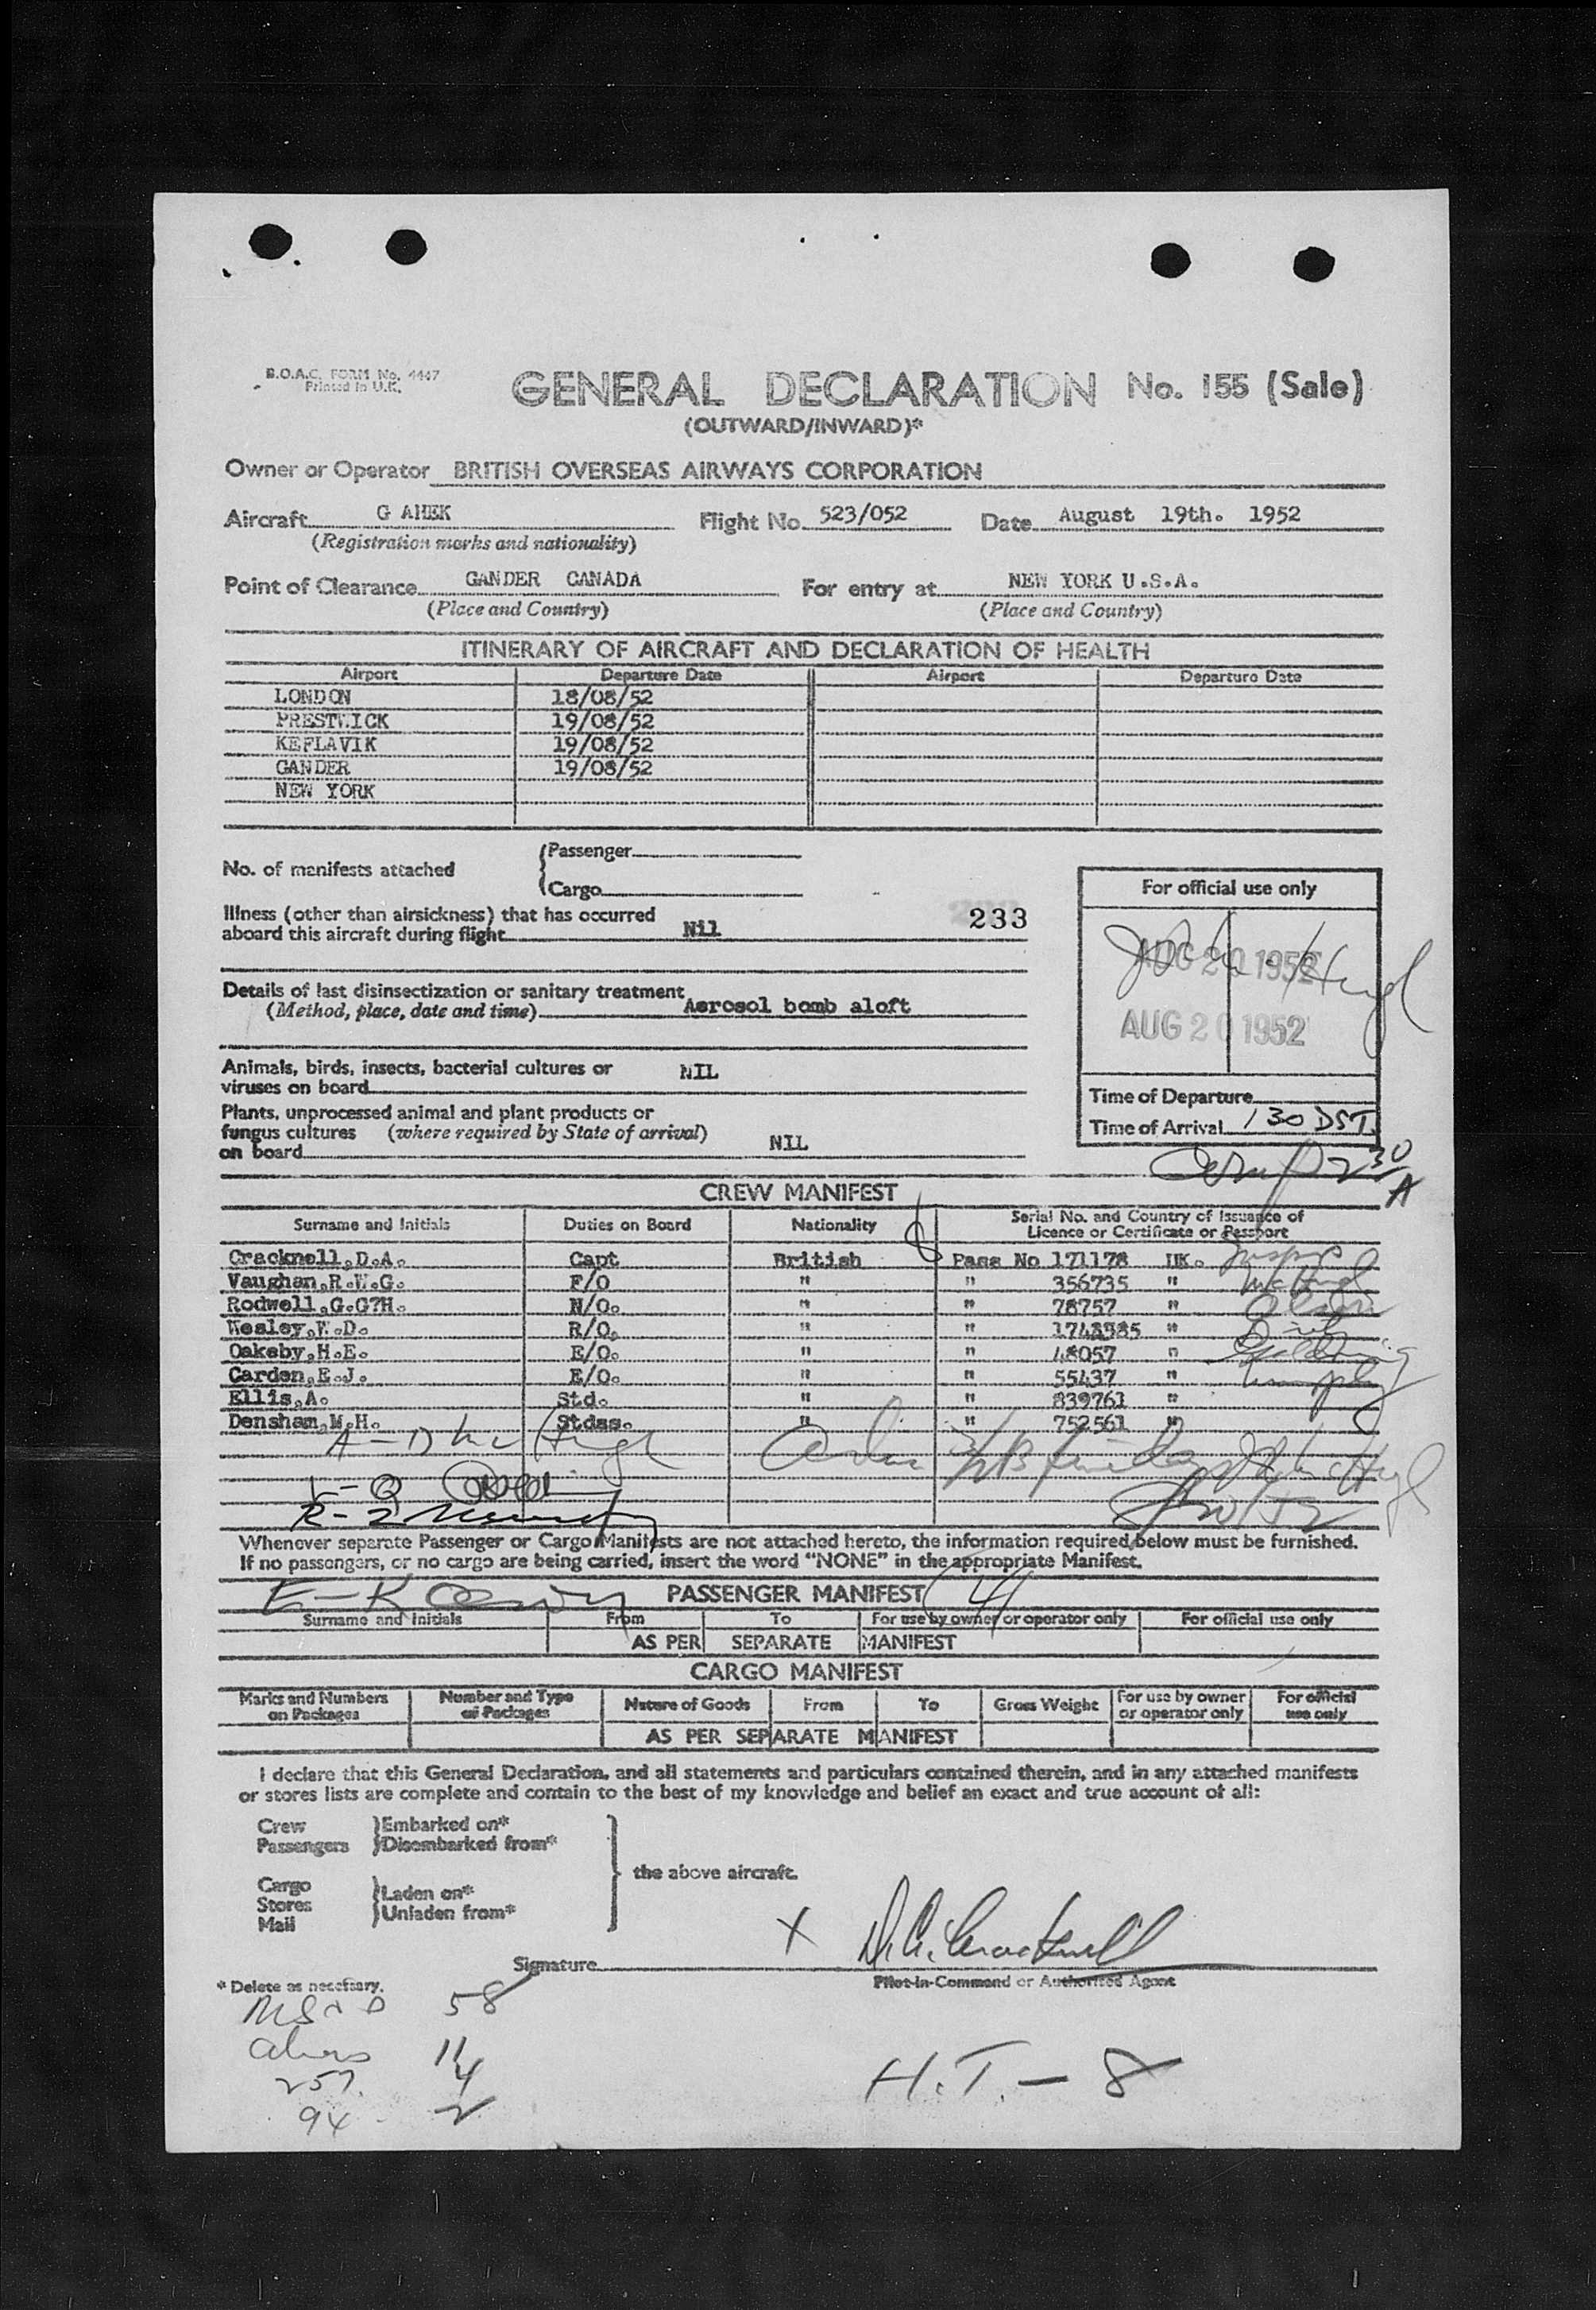 B.O.A.C. FORM No. 4447
Printed in U.K.
GENERAL DECLARATION No. 155 (Sale)
(OUTWARD/INWARD)*
Owner or Operator BRITISH OVERSEAS AIRWAYS CORPORATION
Aircraft G AHEK Flight No. 523/052 Date August 19th. 1952
(Registration marks and nationality)
Point of Clearance GANDER CANADA For entry at NEW YORK U.S.A.
(Place and Country) (Place and Country)
ITINERARY OF AIRCRAFT AND DECLARATION OF HEALTH
Airport Departure Date Airport Departure Date
LONDON 18/08/52
PRESTWICK 19/08/52
KEFLAVIK 19/08/52
GANDER 19/08/52
NEW YORK
No. of manifests attached
Passenger
Cargo
For official use only
Illness (other than airsickness) that has occurred
aboard this aircraft during flight Nil
233
AUG 20 1952
Details of last disinsectization or sanitary treatment
(Method, place, date and time) Aerosol bomb aloft
AUG 20 1952
Animals, birds, insects, bacterial cultures or
viruses on board NIL
Time of Departure
Plants, unprocessed animal and plant products or
fungus cultures (where required by State of arrival)
on board NIL
Time of Arrival 130 DST.
230
A
CREW MANIFEST
Surname and Initials Duties on Board Nationality Serial No. and Country of Issuance of
Licence or Certificate or Passport
Cracknell,D.A. Capt British Pass No 171178 UK.
Vaughan,R.W.G. F/O " " 356735 "
Rodwell,G.G?H. N/O. " " 78757 "
Wesley,W.D. R/O. " " "
Oakeby,H.E. E/O. " " 48057 "
Carden,E.J. E/O. " " 55437 "
Ellis,A. Std. " " 839761 "
Densham,M.H. Stdss. " " 752561 "
Whenever separate Passenger or Cargo Manifests are not attached hereto, the information required below must be furnished.
If no passengers, or no cargo are being carried, insert the word "NONE" in the appropriate Manifest.
PASSENGER MANIFEST
Surname and Initials From To For use by owner or operator only For official use only
AS PER SEPARATE MANIFEST
CARGO MANIFEST
Marks and Numbers on Packages Number and Type of Packages Nature of Goods From To Gross Weight For use by owner or operator only For official use only
AS PER SEPARATE MANIFEST
I declare that this General Declaration, and all statements and particulars contained therein, and in any attached manifests
or stores lists are complete and contain to the best of my knowledge and belief an exact and true account of all:
Crew
Passengers
Embarked on*
Disembarked from*
the above aircraft.
Cargo
Stores
Mail
Laden on*
Unladen from*
X D.A. Cracknell
Signature
Pilot-in-Command or Authorised Agent
* Delete as necessary.
58
11
257. 4
94 2
H.T. - 8